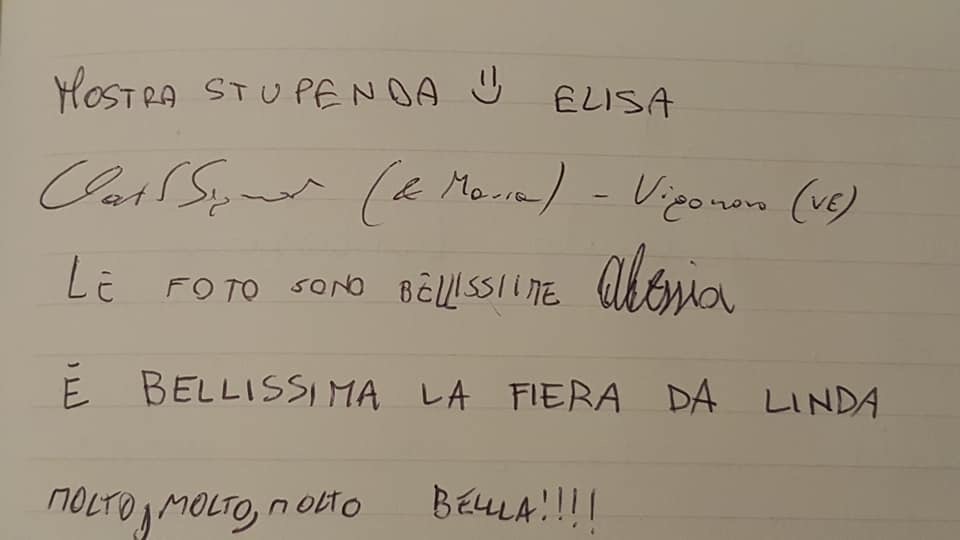 MOSTRA STUPENDA :) ELISA
(& Maria) - Vigonovo (VE)
LE FOTO SONO BELLISSIME Alessia
È BELLISSIMA LA FIERA DA LINDA
MOLTO, MOLTO, MOLTO BELLA!!!!